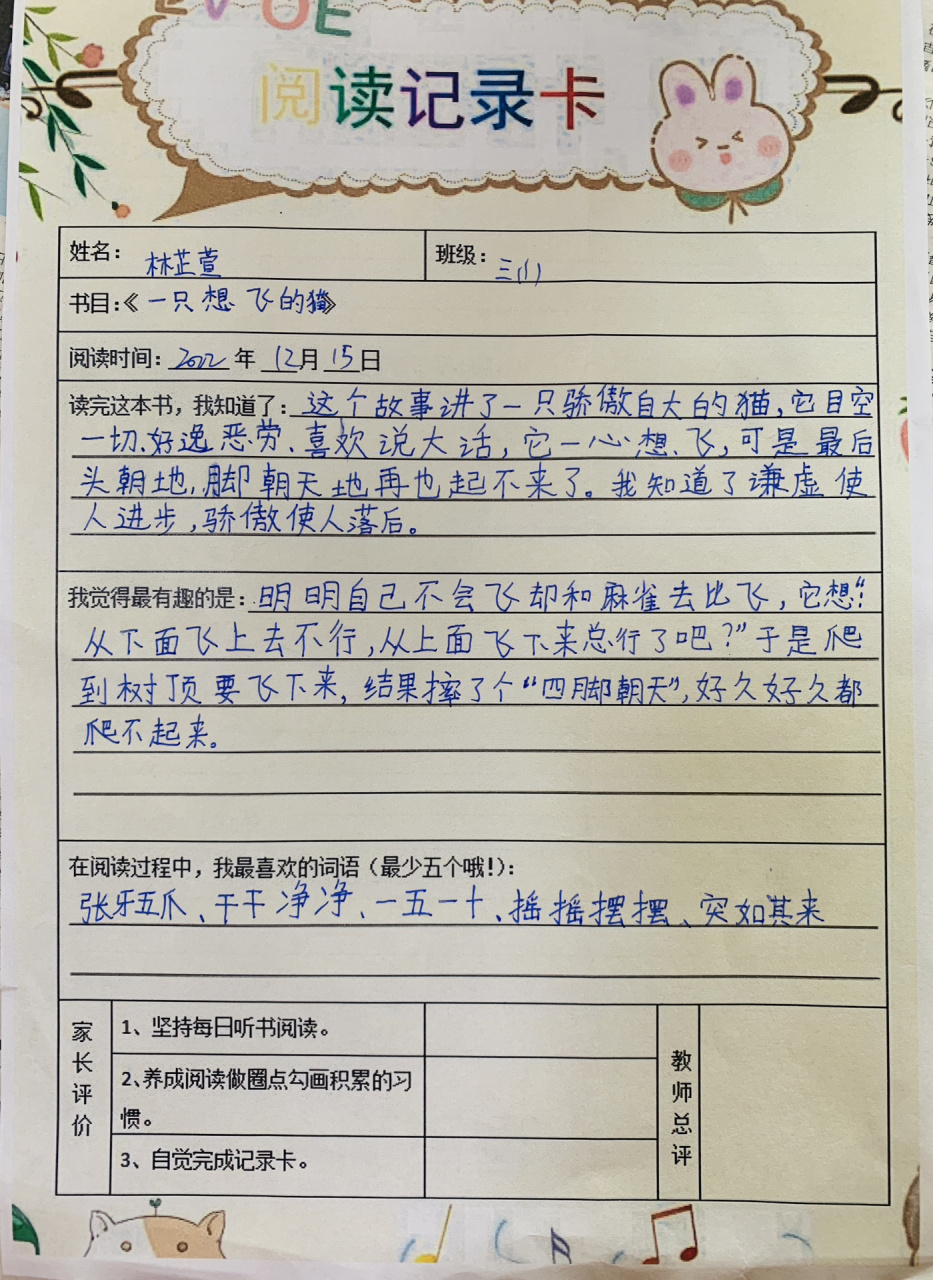 VOE
阅读记录卡
姓名：林芷萱 班级：三(1)
书目：《一只想飞的猫》
阅读时间：2022年12月15日
读完这本书，我知道了：这个故事讲了一只骄傲自大的猫，它目空
一切、好逸恶劳、喜欢说大话，它一心想飞，可是最后
头朝地，脚朝天地再也起不来了。我知道了谦虚使
人进步，骄傲使人落后。
我觉得最有趣的是：明明自己不会飞却和麻雀去比飞，它想：“
从下面飞上去不行，从上面飞下来总行了吧？”于是爬
到树顶要飞下来，结果摔了个“四脚朝天”，好久好久都
爬不起来。
在阅读过程中，我最喜欢的词语（最少五个哦！）：
张牙五爪、干干净净、一五一十、摇摇摆摆、突如其来
家长评价
1、坚持每日听书阅读。
2、养成阅读做圈点勾画积累的习
惯。
3、自觉完成记录卡。
教师总评